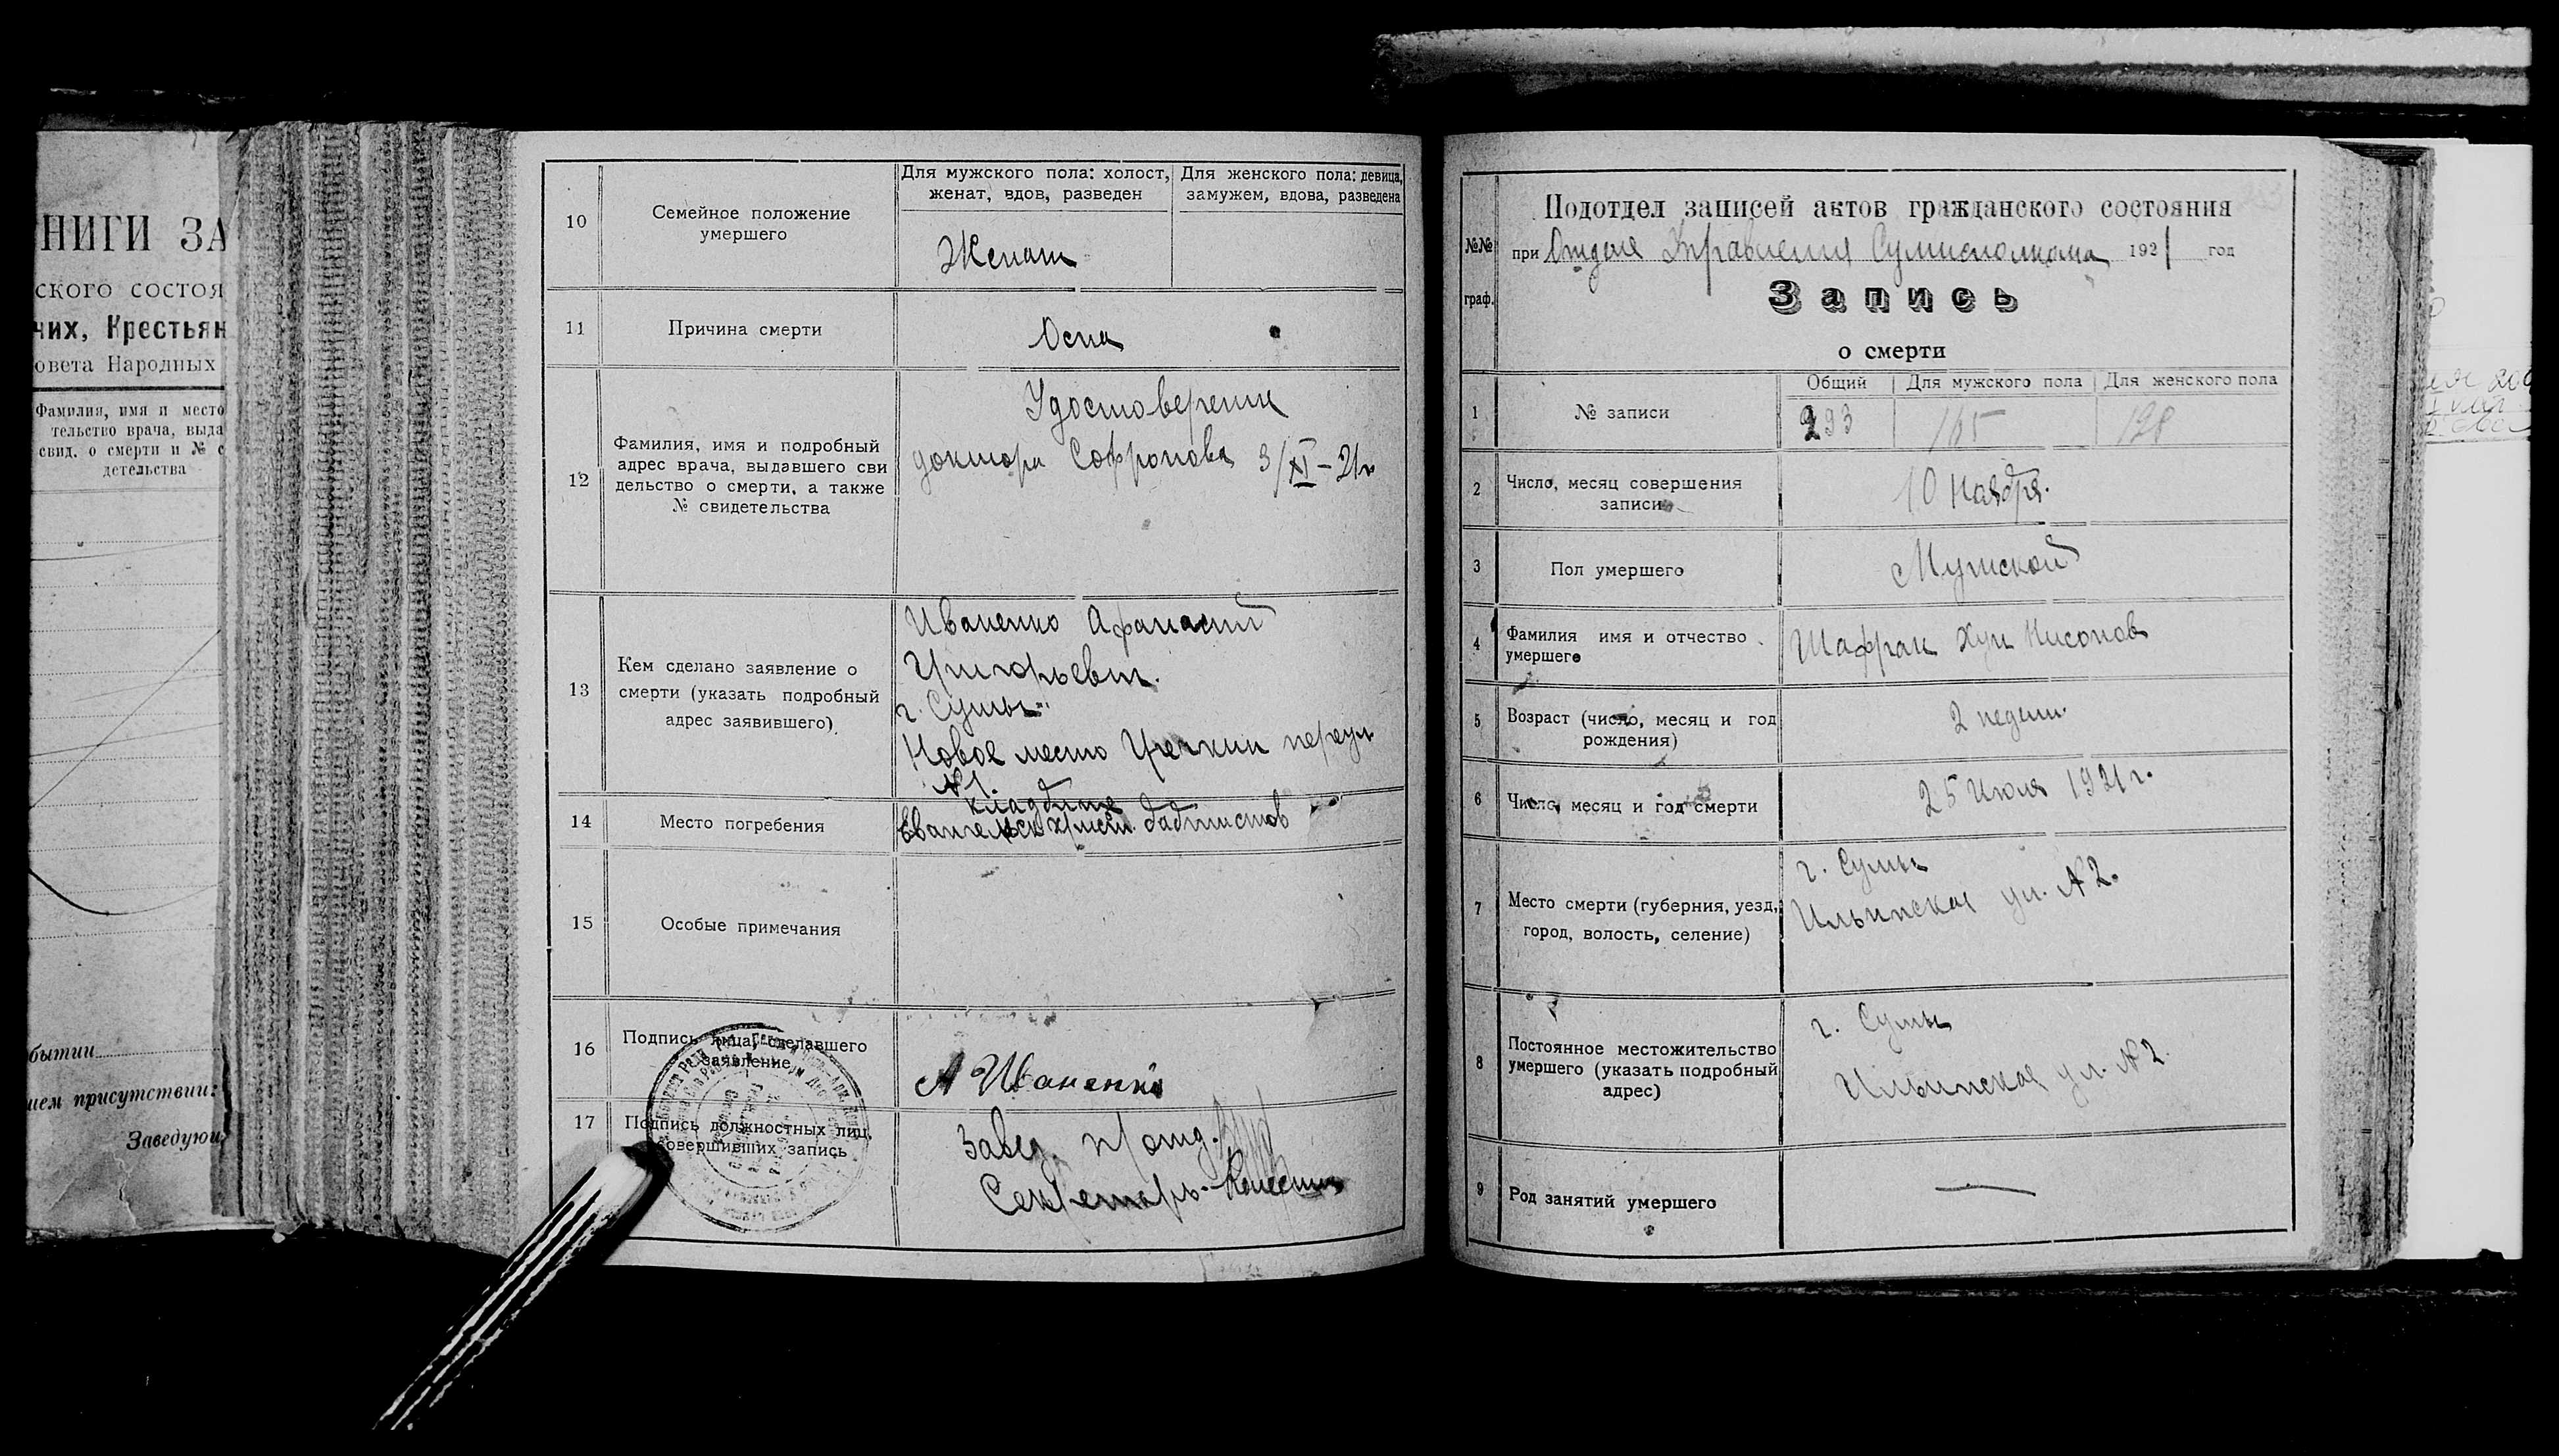 НИГИ ЗА
ского состоя
чих, Крестьян
овета Народных
Фамилия, имя и место
тельство врача, выда
свид. о смерти и № с
детельства
бытии
ием присутствии:
Заведую
10
Семейное положение
умершего
Для мужского пола: холост,
женат, вдов, разведен
Для женского пола: девица,
замужем, вдова, разведена
Женат
11
Причина смерти
Оспа
12
Фамилия, имя и подробный
адрес врача, выдавшего сви
дельство о смерти, а также
№ свидетельства
Удостоверение
доктора Софронова 3/XI-21г
13
Кем сделано заявление о
смерти (указать подробный
адрес заявившего).
Иваненко Афанасий
Григорьевич.
г. Сумы
Новое место переул
№ 1.
14
Место погребения
кладбище
Евангельск христ. баптистов
15
Особые примечания
16
Подпись лица, сделавшего
заявление
А Иваненко
17
Подпись должностных лиц,
совершивших запись
Завед. п/отд.
Секретарь
№№
граф.
Подотдел записей актов гражданского состояния
при Отделе Управления Сумисполкома 1921 год
Запись
о смерти
1
№ записи
Общий
Для мужского пола
Для женского пола
293
165
128
2
Число, месяц совершения
записи
10 Ноября.
3
Пол умершего
Мужской
4
Фамилия имя и отчество
умершего
Шафран Хун Нисонов
5
Возраст (число, месяц и год
рождения)
2 недели.
6
Число, месяц и год смерти
25 Июля 1921 г.
7
Место смерти (губерния, уезд,
город, волость, селение)
г. Сумы
Ильинская ул. № 2.
8
Постоянное местожительство
умершего (указать подробный
адрес)
г. Сумы
Ильинская ул. № 2.
9
Род занятий умершего
—